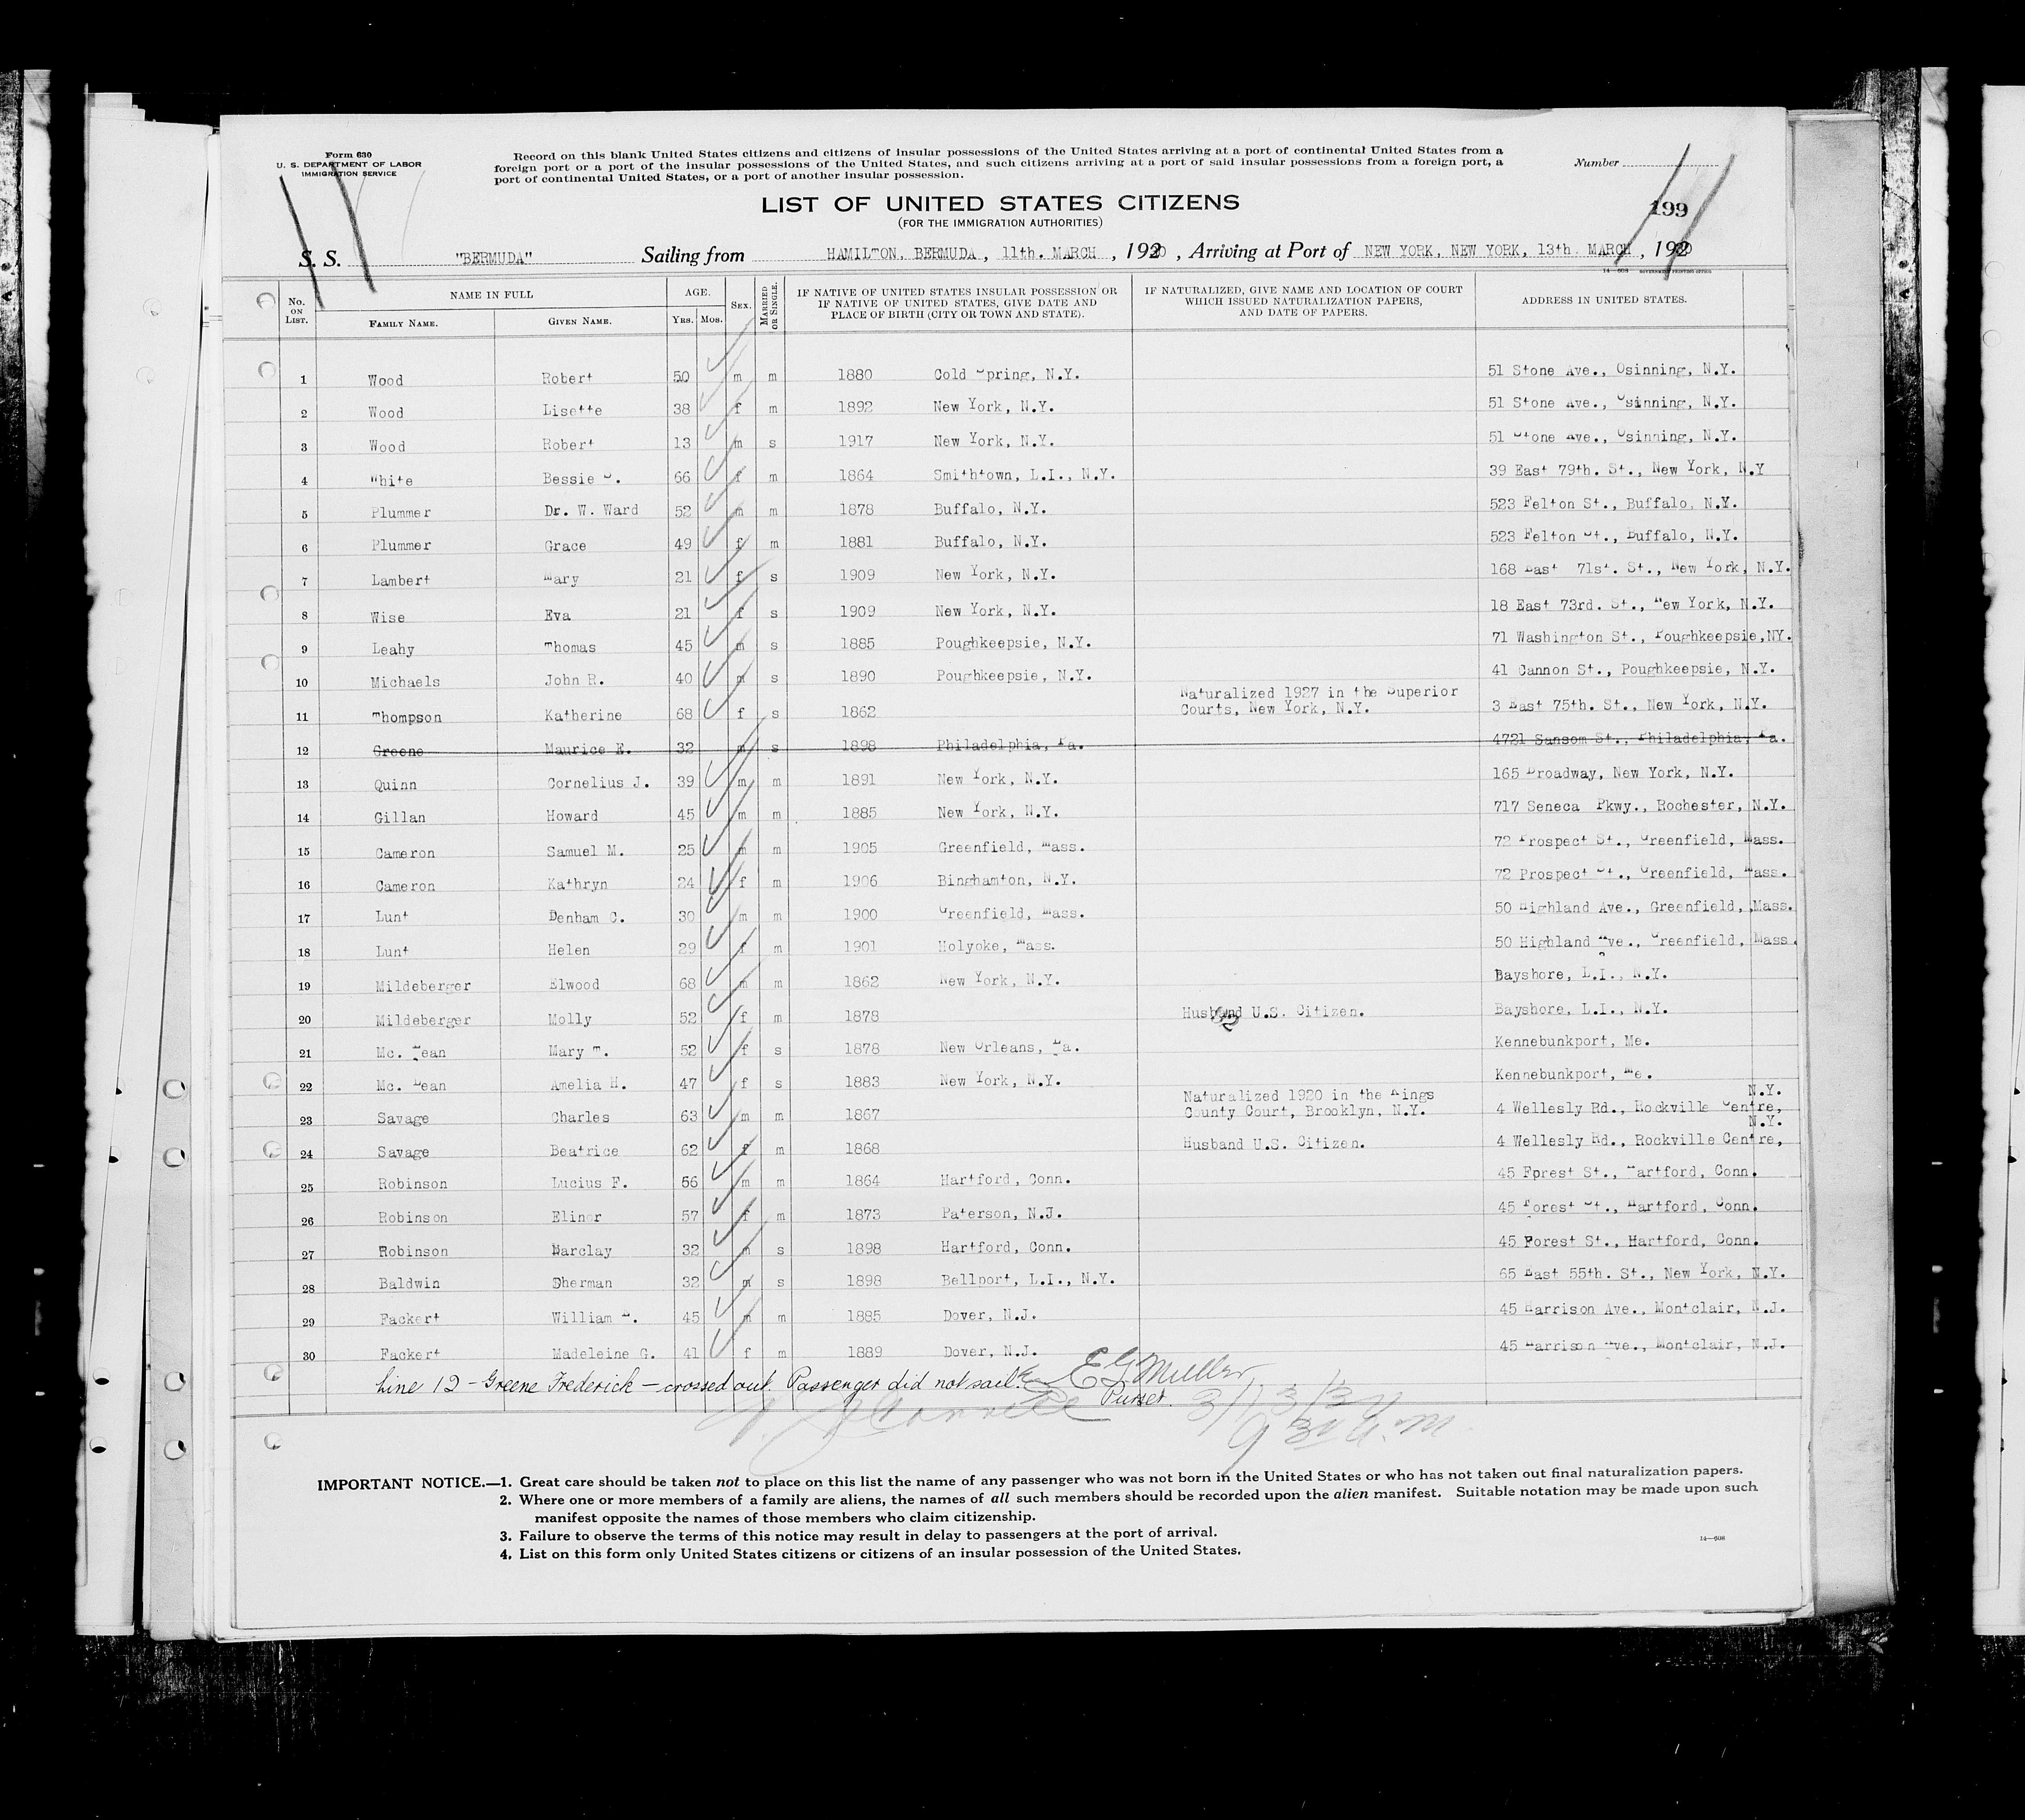 Form 630
U. S. DEPARTMENT OF LABOR
IMMIGRATION SERVICE
Record on this blank United States citizens and citizens of insular possessions of the United States arriving at a port of continental United States from a
foreign port or a port of the insular possessions of the United States, and such citizens arriving at a port of said insular possessions from a foreign port, a
port of continental United States, or a port of another insular possession.
Number
LIST OF UNITED STATES CITIZENS
(FOR THE IMMIGRATION AUTHORITIES)
199
S. S. "BERMUDA" Sailing from HAMILTON, BERMUDA, 11th. MARCH, 1930, Arriving at Port of NEW YORK, NEW YORK, 13th. MARCH, 1930
14—608 GOVERNMENT PRINTING OFFICE
No. ON LIST. NAME IN FULL AGE. SEX. MARRIED OR SINGLE. IF NATIVE OF UNITED STATES INSULAR POSSESSION OR IF NATIVE OF UNITED STATES, GIVE DATE AND PLACE OF BIRTH (CITY OR TOWN AND STATE). IF NATURALIZED, GIVE NAME AND LOCATION OF COURT WHICH ISSUED NATURALIZATION PAPERS, AND DATE OF PAPERS. ADDRESS IN UNITED STATES.
FAMILY NAME. GIVEN NAME. YRS. MOS.
1 Wood Robert 50 m m 1880 Cold Spring, N.Y. 51 Stone Ave., Osinning, N.Y.
2 Wood Lisette 38 f m 1892 New York, N.Y. 51 Stone Ave., Osinning, N.Y.
3 Wood Robert 13 m s 1917 New York, N.Y. 51 Stone Ave., Osinning, N.Y.
4 White Bessie S. 66 f m 1864 Smithtown, L.I., N.Y. 39 East 79th. St., New York, N.Y
5 Plummer Dr. W. Ward 52 m m 1878 Buffalo, N.Y. 523 Felton St., Buffalo, N.Y.
6 Plummer Grace 49 f m 1881 Buffalo, N.Y. 523 Felton St., Buffalo, N.Y.
7 Lambert Mary 21 f s 1909 New York, N.Y. 168 East 71st. St., New York, N.Y.
8 Wise Eva 21 f s 1909 New York, N.Y. 18 East 73rd. St., New York, N.Y.
9 Leahy Thomas 45 m s 1885 Poughkeepsie, N.Y. 71 Washington St., Poughkeepsie, NY.
10 Michaels John R. 40 m s 1890 Poughkeepsie, N.Y. 41 Cannon St., Poughkeepsie, N.Y.
11 Thompson Katherine 68 f s 1862 Naturalized 1927 in the Superior Courts, New York, N.Y. 3 East 75th. St., New York, N.Y.
12 Greene Maurice E. 32 m s 1898 Philadelphia, Pa. 4721 Sansom St., Philadelphia, Pa.
13 Quinn Cornelius J. 39 m m 1891 New York, N.Y. 165 Broadway, New York, N.Y.
14 Gillan Howard 45 m m 1885 New York, N.Y. 717 Seneca Pkwy., Rochester, N.Y.
15 Cameron Samuel M. 25 m m 1905 Greenfield, Mass. 72 Prospect St., Greenfield, Mass.
16 Cameron Kathryn 24 f m 1906 Binghamton, N.Y. 72 Prospect St., Greenfield, Mass.
17 Lunt Denham C. 30 m m 1900 Greenfield, Mass. 50 Highland Ave., Greenfield, Mass.
18 Lunt Helen 29 f m 1901 Holyoke, Mass. 50 Highland Ave., Greenfield, Mass.
19 Mildeberger Elwood 68 m m 1862 New York, N.Y. Bayshore, L.I., N.Y.
20 Mildeberger Molly 52 f m 1878 Husband U.S. Citizen. Bayshore, L.I., N.Y.
21 Mc. Lean Mary T. 52 f s 1878 New Orleans, La. Kennebunkport, Me.
22 Mc. Lean Amelia H. 47 f s 1883 New York, N.Y. Kennebunkport, Me.
23 Savage Charles 63 m m 1867 Naturalized 1920 in the Kings County Court, Brooklyn, N.Y. 4 Wellesly Rd., Rockville Centre, N.Y.
24 Savage Beatrice 62 f m 1868 Husband U.S. Citizen. 4 Wellesly Rd., Rockville Centre, N.Y.
25 Robinson Lucius F. 56 m m 1864 Hartford, Conn. 45 Fprest St., Hartford, Conn.
26 Robinson Elinor 57 f m 1873 Paterson, N.J. 45 Forest St., Hartford, Conn.
27 Robinson Barclay 32 m s 1898 Hartford, Conn. 45 Forest St., Hartford, Conn.
28 Baldwin Sherman 32 m s 1898 Bellport, L.I., N.Y. 65 East 55th. St., New York, N.Y.
29 Fackert William 45 m m 1885 Dover, N.J. 45 Harrison Ave., Montclair, N.J.
30 Fackert Madeleine G. 41 f m 1889 Dover, N.J. 45 Harrison Ave., Montclair, N.J.
Line 12 - Greene Frederick - crossed out. Passenger did not sail. E G Muller
Purser.
3/13/30
9 30 A.M.
IMPORTANT NOTICE.—1. Great care should be taken not to place on this list the name of any passenger who was not born in the United States or who has not taken out final naturalization papers.
2. Where one or more members of a family are aliens, the names of all such members should be recorded upon the alien manifest. Suitable notation may be made upon such
manifest opposite the names of those members who claim citizenship.
3. Failure to observe the terms of this notice may result in delay to passengers at the port of arrival.
4. List on this form only United States citizens or citizens of an insular possession of the United States.
14—608